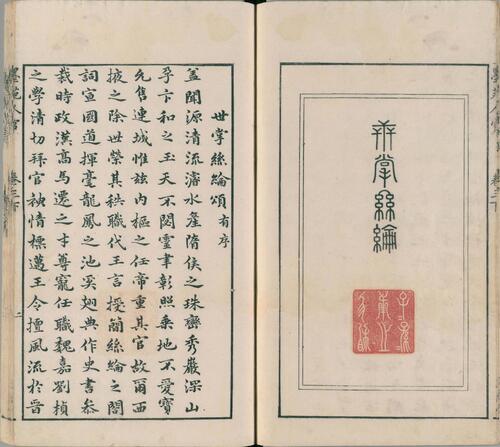 世掌絲綸
世掌絲綸頌有序
蓋聞源清流濬水產隋侯之珠巒秀巖深山
孕卞和之玉天不閟靈聿彰照乘地不愛寶
允售連城惟茲內樞之任帝重其官故爾西
掖之除世榮其秩職代王言授簡絲綸之閣
詞宣國道揮毫龍鳳之池奚翅典作史書參
裁時政漢高馬遷之才專寵任職魏嘉劉楨
之學清切拜官袖情標邁王令擅風流於晉
卷三下
二